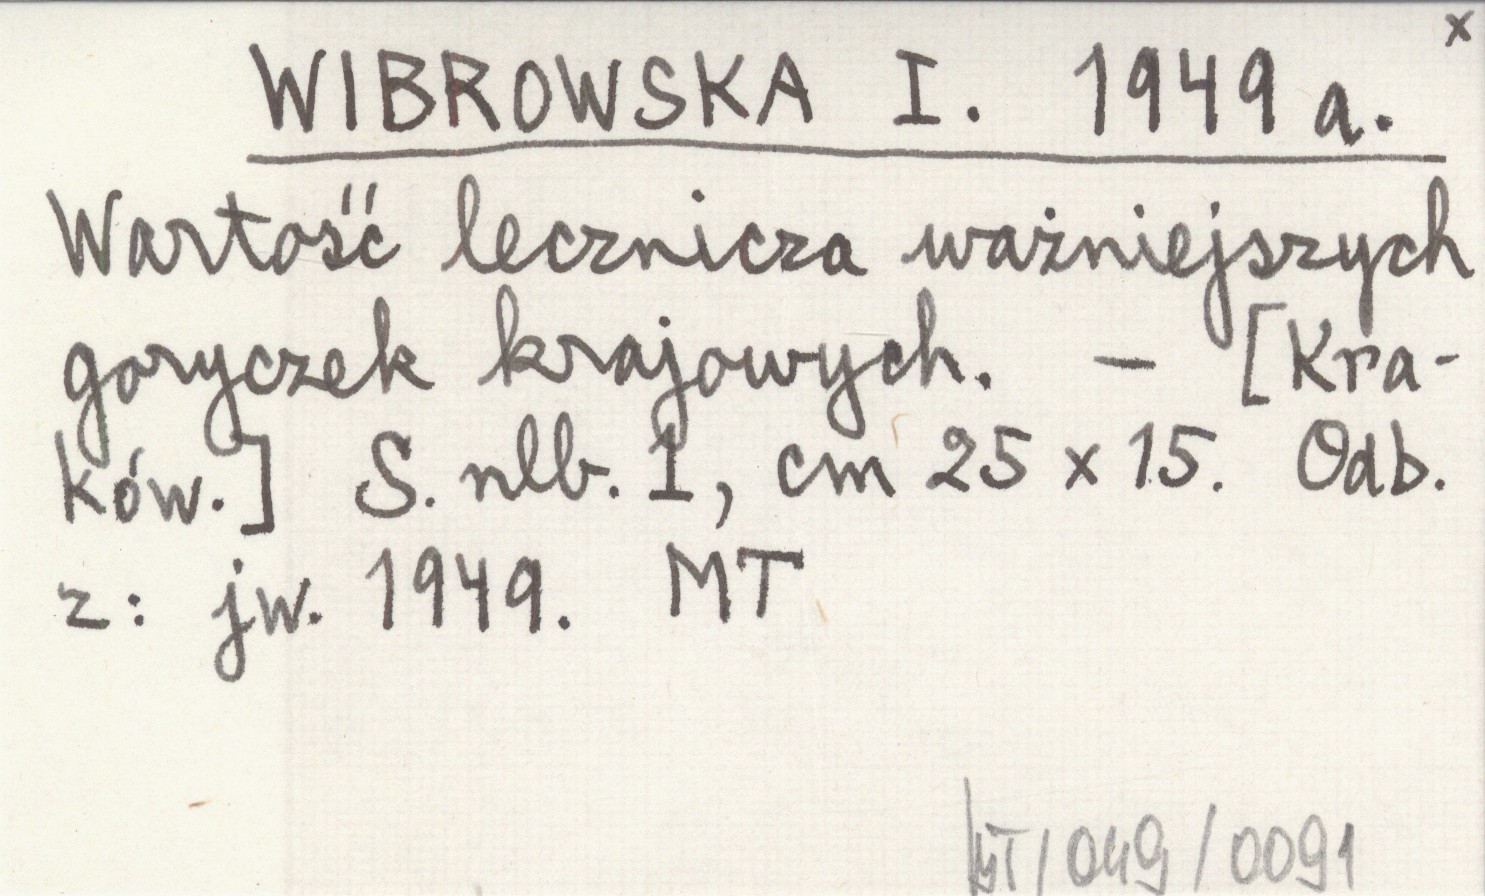 x
WIBROWSKA I. 1949 a.
Wartość lecznicza ważniejszych
goryczek krajowych. – [Kra-
ków.] S. nlb. 1, cm 25 x 15. Odb.
z: jw. 1949. MT
/049/0091